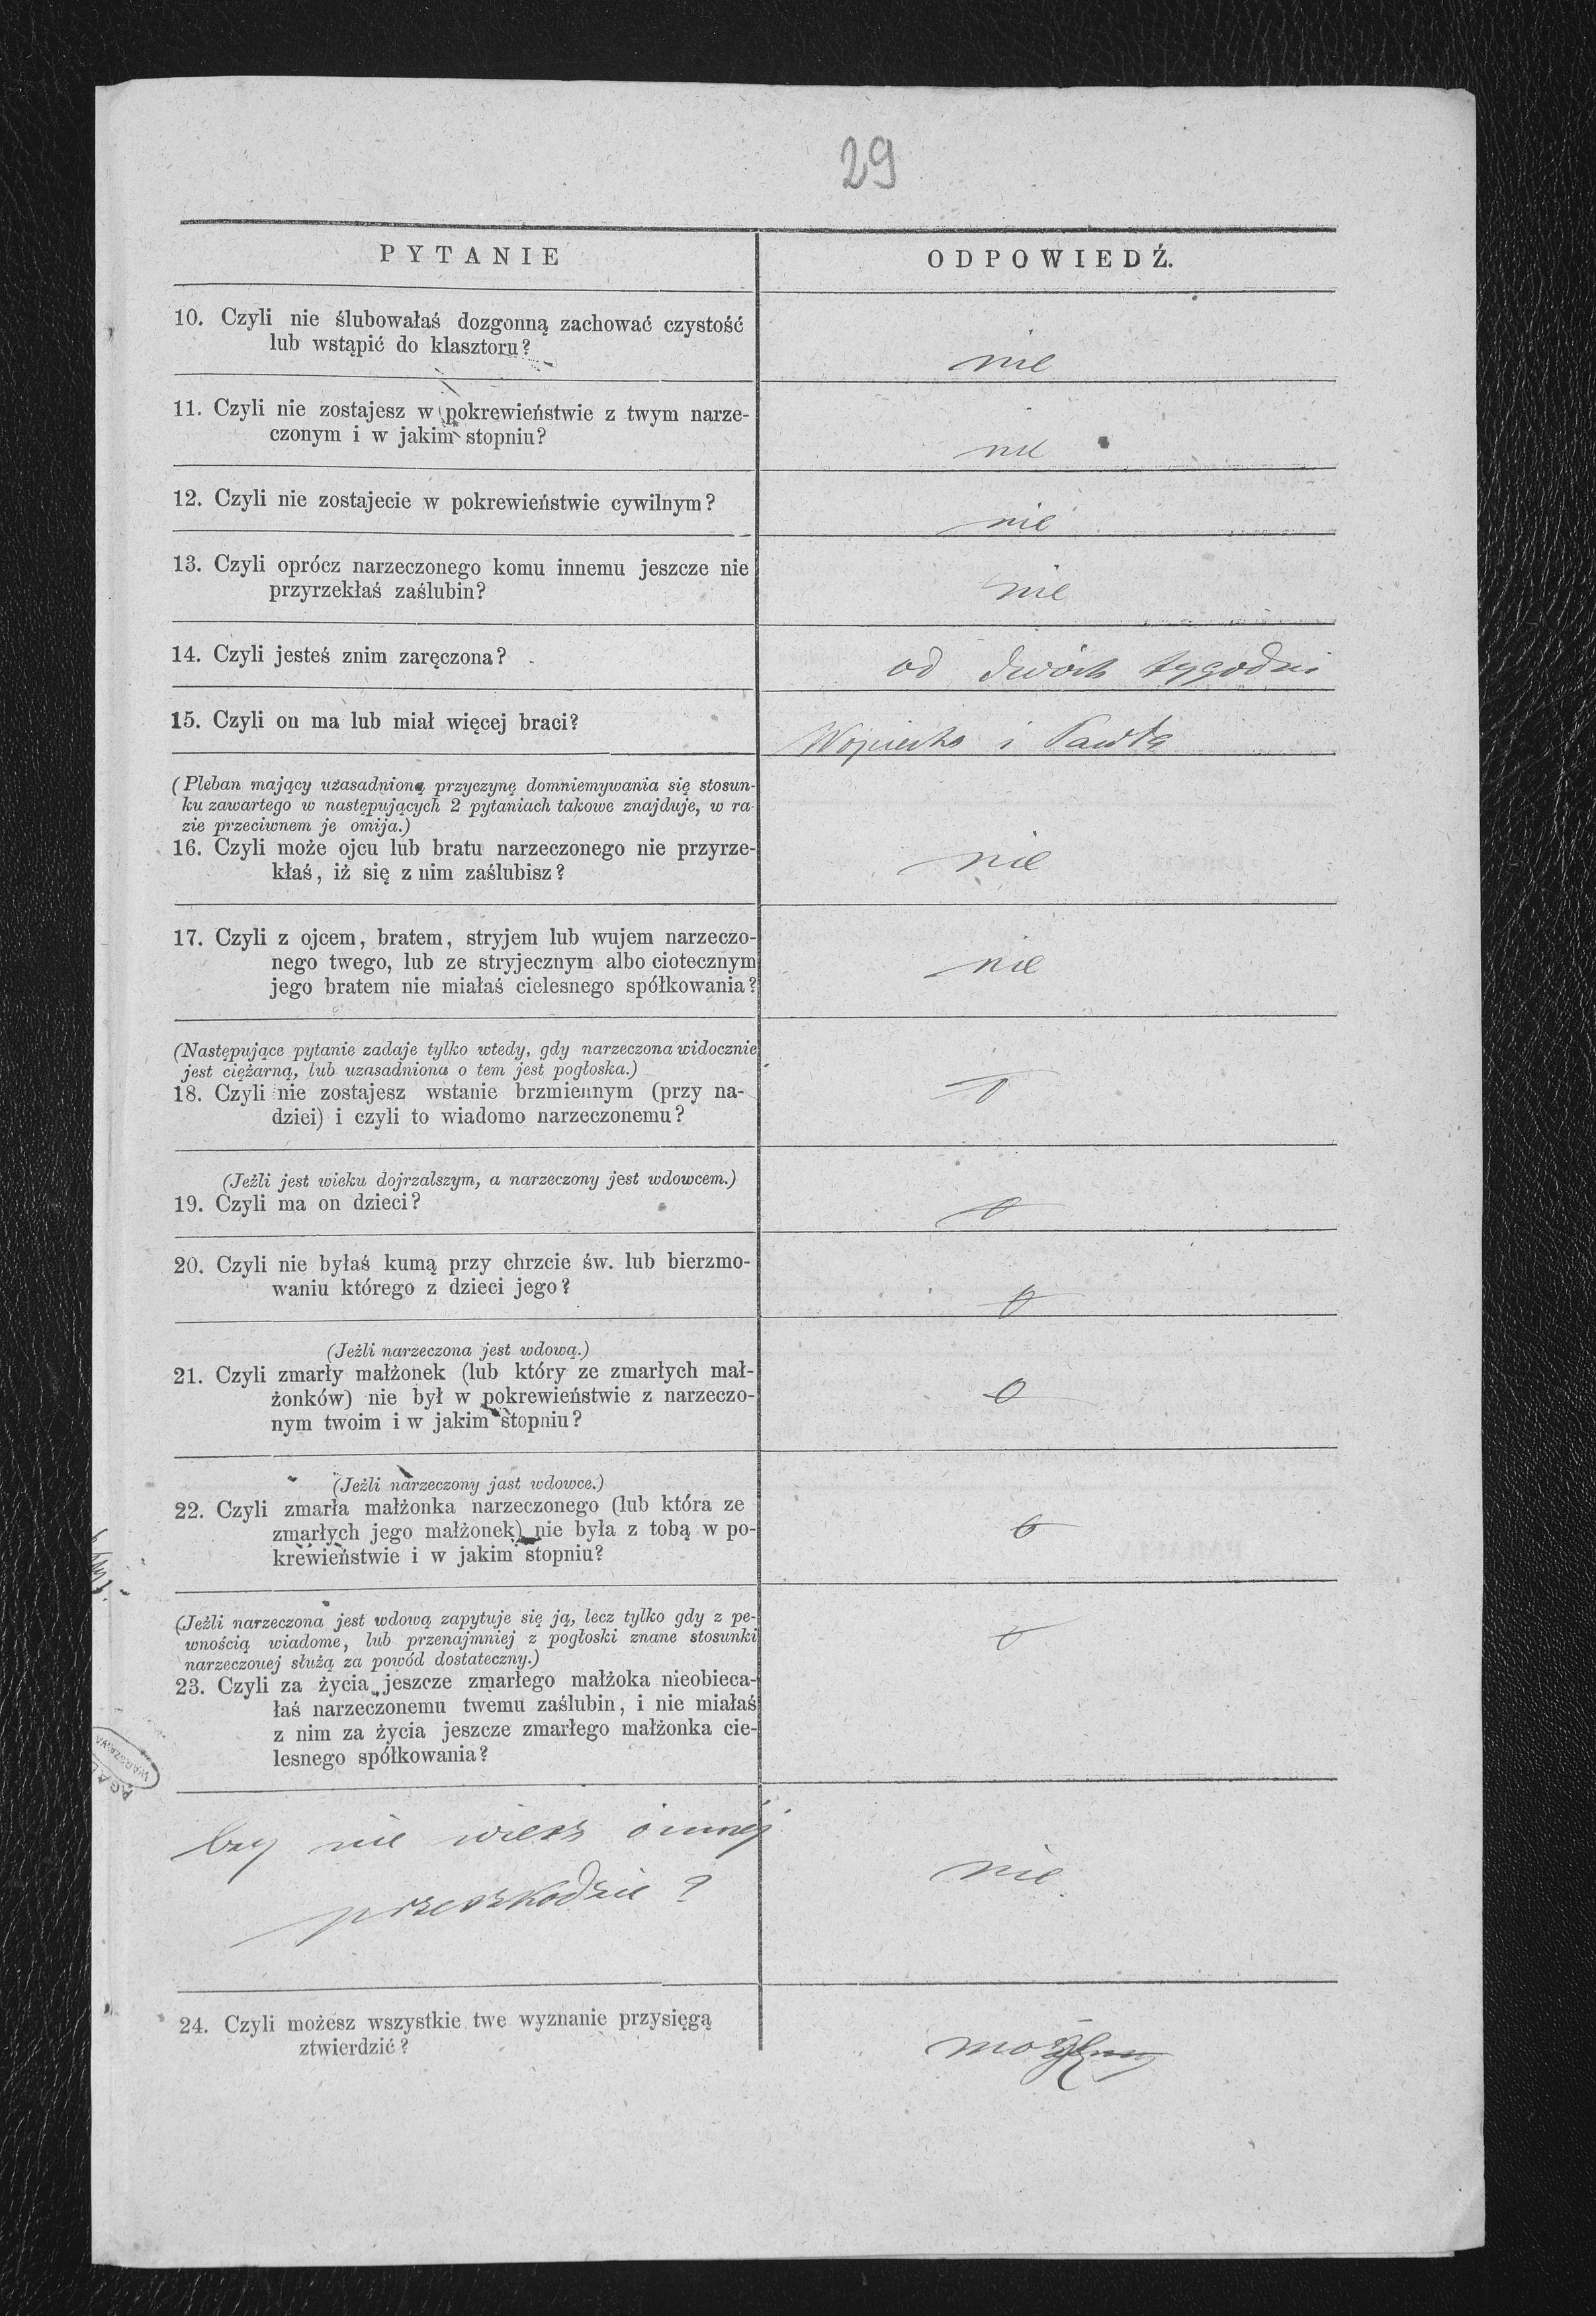 29
PYTANIE
ODPOWIEDŹ.
10. Czyli nie ślubowałaś dozgonną zachować czystość
lub wstąpić do klasztoru?
nie
11. Czyli nie zostajesz w pokrewieństwie z twym narze-
czonym i w jakim stopniu?
nie
12. Czyli nie zostajecie w pokrewieństwie cywilnym?
nie
13. Czyli oprócz narzeczonego komu innemu jeszcze nie
przyrzekłaś zaślubin?
nie
14. Czyli jesteś znim zaręczona?
od dwóch tygodni
15. Czyli on ma lub miał więcej braci?
Wojciecha i Pawła
(Pleban mający uzasadnioną przyczynę domniemywania się stosun-
ku zawartego w następujących 2 pytaniach takowe znajduje, w ra-
zie przeciwnem je omija.)
16. Czyli może ojcu lub bratu narzeczonego nie przyrze-
kłaś, iż się z nim zaślubisz?
nie
17. Czyli z ojcem, bratem, stryjem lub wujem narzeczo-
nego twego, lub ze stryjecznym albo ciotecznym
jego bratem nie miałaś cielesnego spółkowania?
nie
(Następujące pytanie zadaje tylko wtedy, gdy narzeczona widocznie
jest ciężarną, lub uzasadniona o tem jest pogłoska.)
18. Czyli nie zostajesz wstanie brzmiennym (przy na-
dziei) i czyli to wiadomo narzeczonemu?
(Jeżli jest wieku dojrzalszym, a narzeczony jest wdowcem.)
19. Czyli ma on dzieci?
20. Czyli nie byłaś kumą przy chrzcie św. lub bierzmo-
waniu którego z dzieci jego?
(Jeżli narzeczona jest wdową.)
21. Czyli zmarły małżonek (lub który ze zmarłych mał-
żonków) nie był w pokrewieństwie z narzeczo-
nym twoim i w jakim stopniu?
(Jeżli narzeczony jast wdowce.)
22. Czyli zmarła małżonka narzeczonego (lub która ze
zmarłych jego małżonek) nie była z tobą w po-
krewieństwie i w jakim stopniu?
(Jeżli narzeczona jest wdową zapytuje się ją, lecz tylko gdy z pe-
wnością wiadome, lub przenajmniej z pogłoski znane stosunki
narzeczouej służą za powód dostateczny.)
23. Czyli za życia jeszcze zmarłego małżoka nieobieca-
łaś narzeczonemu twemu zaślubin, i nie miałaś
z nim za życia jeszcze zmarłego małżonka cie-
lesnego spółkowania?
Czy nie wiesz o innej
przeszkodzie?
nie.
24. Czyli możesz wszystkie twe wyznanie przysięgą
ztwierdzić?
AGAD
WARSZAWA